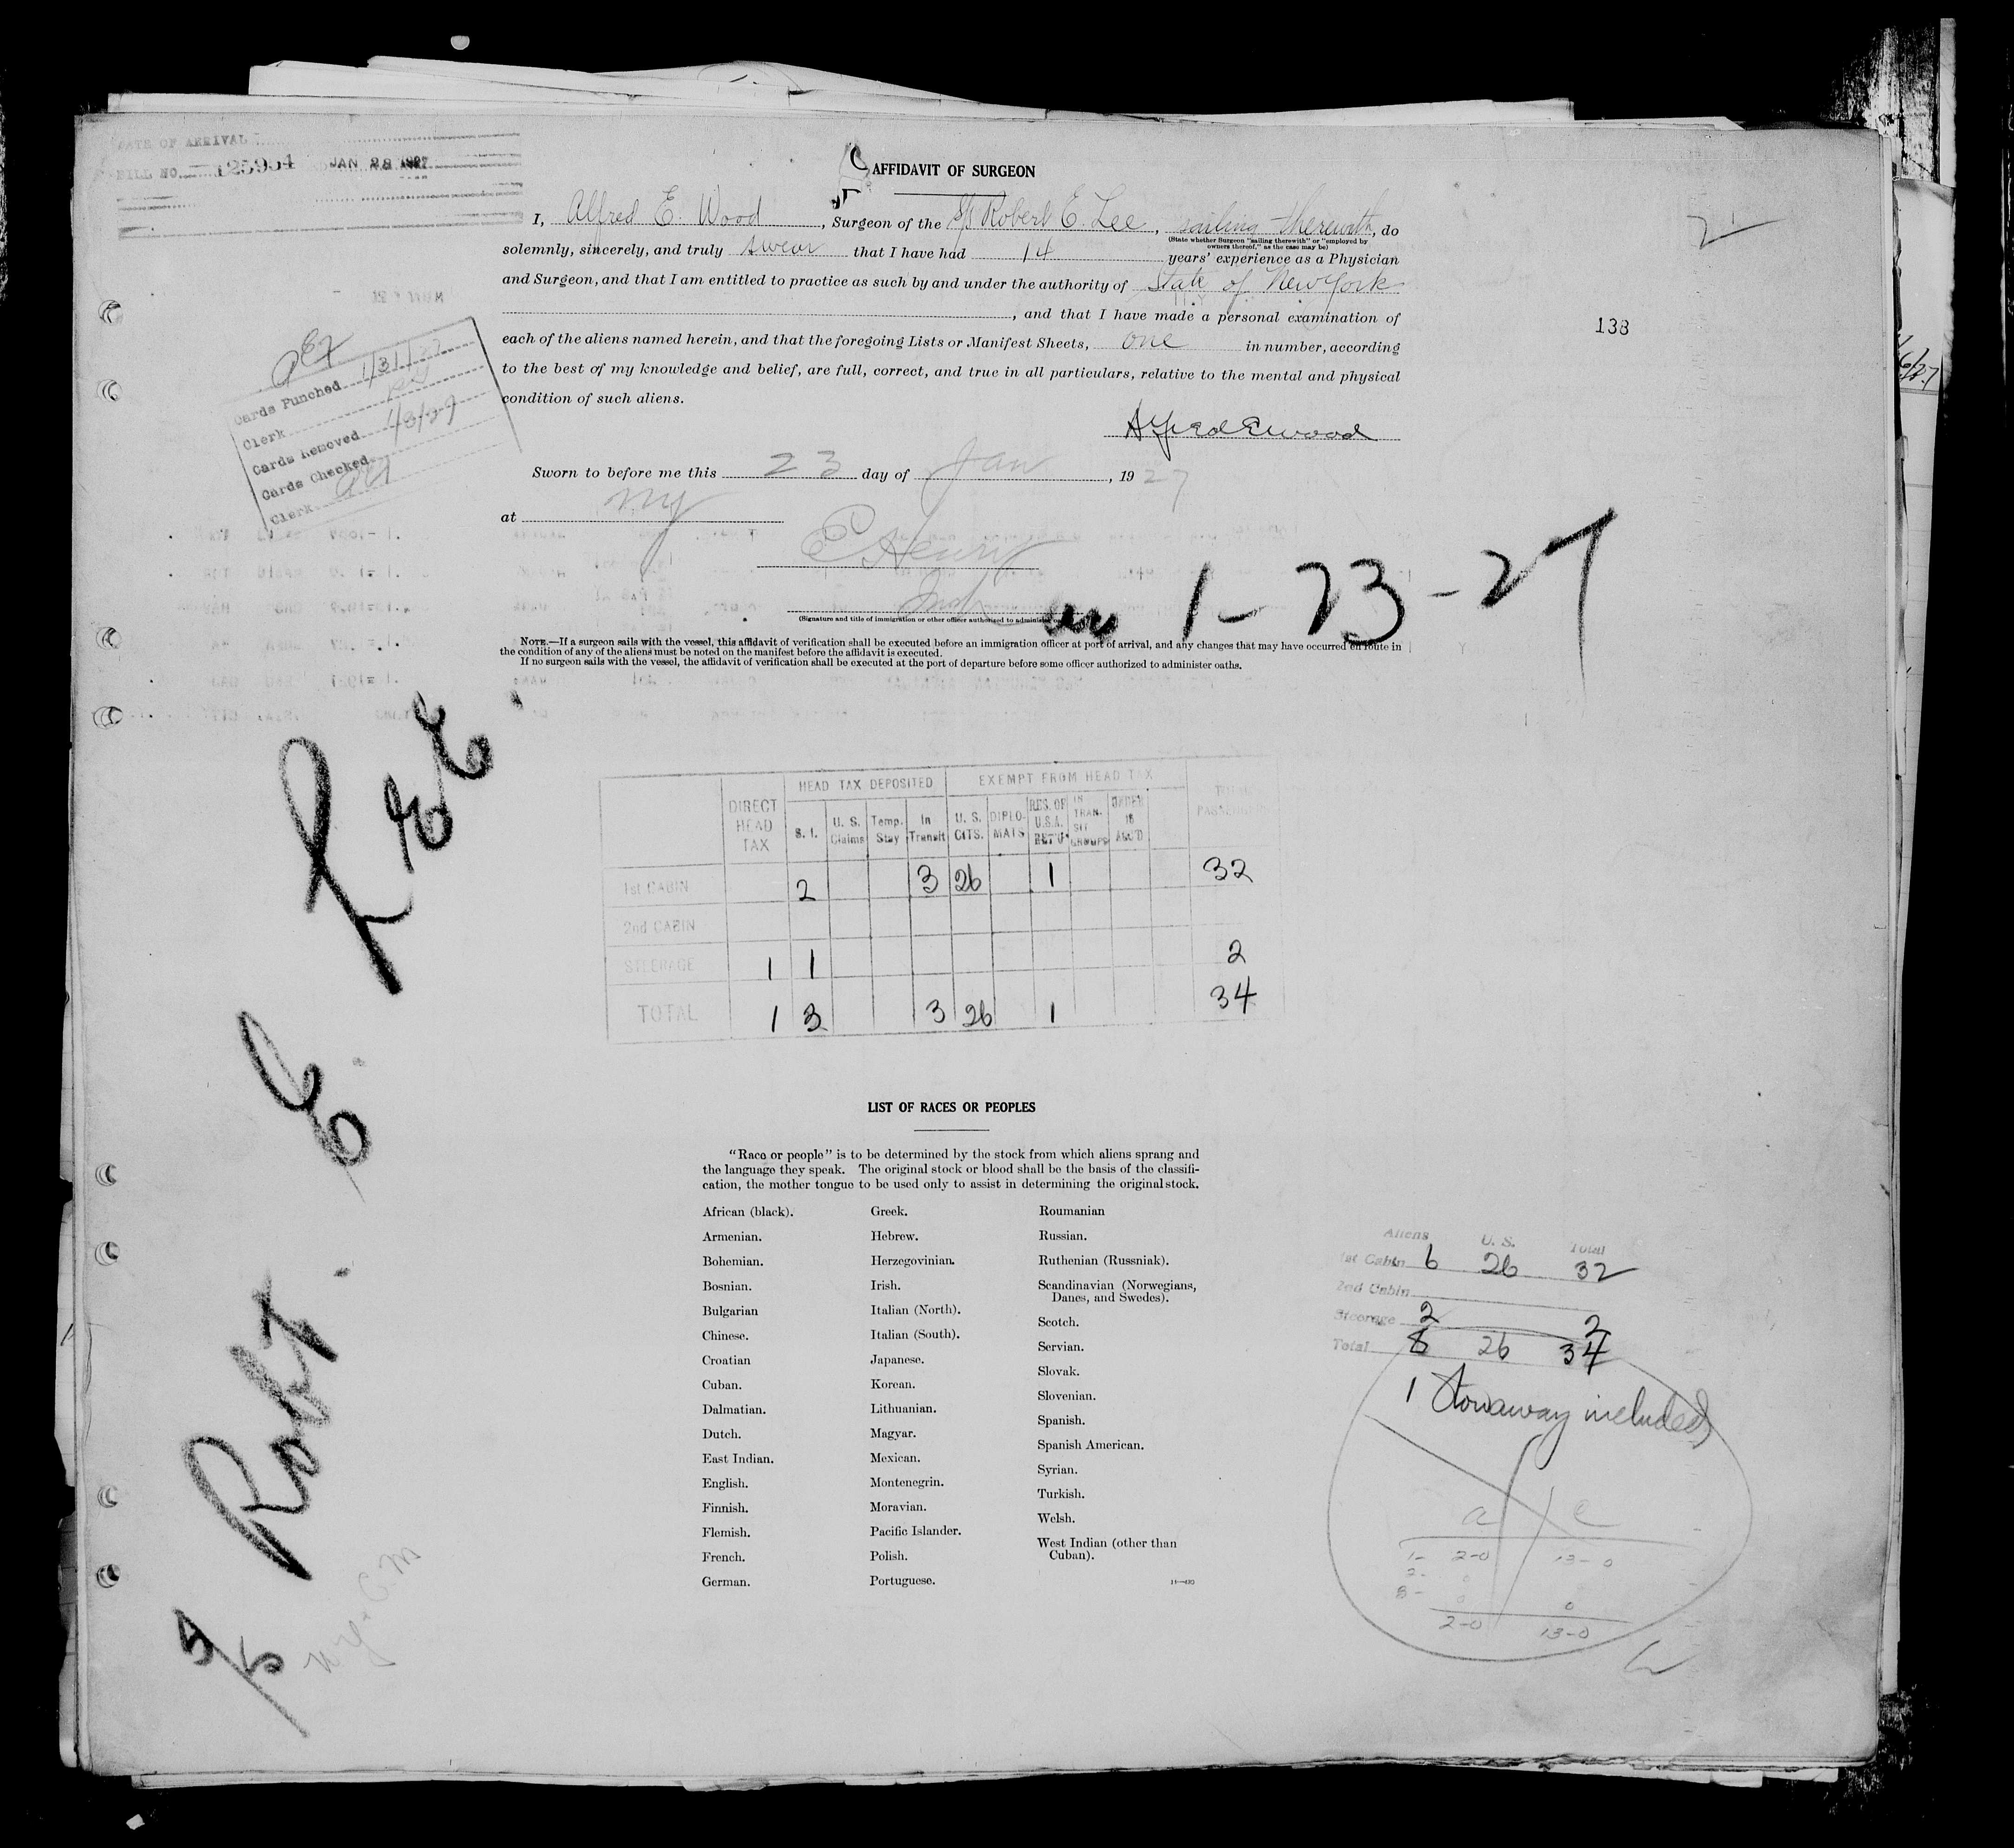 DATE OF ARRIVAL
BILL NO. 125954 JAN 28 1927
AFFIDAVIT OF SURGEON
I, Alfred E. Wood, Surgeon of the S/S Robert E. Lee, sailing therewith, do
(State whether Surgeon "sailing therewith" or "employed by
owners thereof," as the case may be)
solemnly, sincerely, and truly swear that I have had 14 years' experience as a Physician
and Surgeon, and that I am entitled to practice as such by and under the authority of State of New York
, and that I have made a personal examination of
each of the aliens named herein, and that the foregoing Lists or Manifest Sheets, one in number, according
to the best of my knowledge and belief, are full, correct, and true in all particulars, relative to the mental and physical
condition of such aliens.
Alfred E Wood
138
Cards Punched 1/31/27
Clerk
Cards Removed
Cards Checked
Clerk
Sworn to before me this 23 day of Jan, 1927
at NY
E Henry
Insp
(Signature and title of immigration or other officer authorized to administer
1-23-27
NOTE.—If a surgeon sails with the vessel, this affidavit of verification shall be executed before an immigration officer at port of arrival, and any changes that may have occurred en route in
the condition of any of the aliens must be noted on the manifest before the affidavit is executed.
If no surgeon sails with the vessel, the affidavit of verification shall be executed at the port of departure before some officer authorized to administer oaths.
S/S Robt. E. Lee.
DIRECT HEAD TAX HEAD TAX DEPOSITED EXEMPT FROM HEAD TAX TOTAL PASSENGERS
S. I. U. S. Claims Temp. Stay In Transit U. S. CITS. DIPLO-MATS RES. OF U.S.A. RET'G IN TRAN-SIT GROUPS UNDER 16 ACC'D
1st CABIN 2 3 26 1 32
2nd CABIN
STEERAGE 1 1 2
TOTAL 1 3 3 26 1 34
LIST OF RACES OR PEOPLES
"Race or people" is to be determined by the stock from which aliens sprang and
the language they speak. The original stock or blood shall be the basis of the classifi-
cation, the mother tongue to be used only to assist in determining the original stock.
African (black).
Armenian.
Bohemian.
Bosnian.
Bulgarian
Chinese.
Croatian
Cuban.
Dalmatian.
Dutch.
East Indian.
English.
Finnish.
Flemish.
French.
German.
Greek.
Hebrew.
Herzegovinian.
Irish.
Italian (North).
Italian (South).
Japanese.
Korean.
Lithuanian.
Magyar.
Mexican.
Montenegrin.
Moravian.
Pacific Islander.
Polish.
Portuguese.
Roumanian
Russian.
Ruthenian (Russniak).
Scandinavian (Norwegians,
Danes, and Swedes).
Scotch.
Servian.
Slovak.
Slovenian.
Spanish.
Spanish American.
Syrian.
Turkish.
Welsh.
West Indian (other than
Cuban).
Aliens U. S. Total
1st Cabin 6 26 32
2nd Cabin
Steerage 2 2
Total 8 26 34
1 Stowaway included
a c
1- 2-0 13-0
2- 0
3- 0 0
2-0 13-0